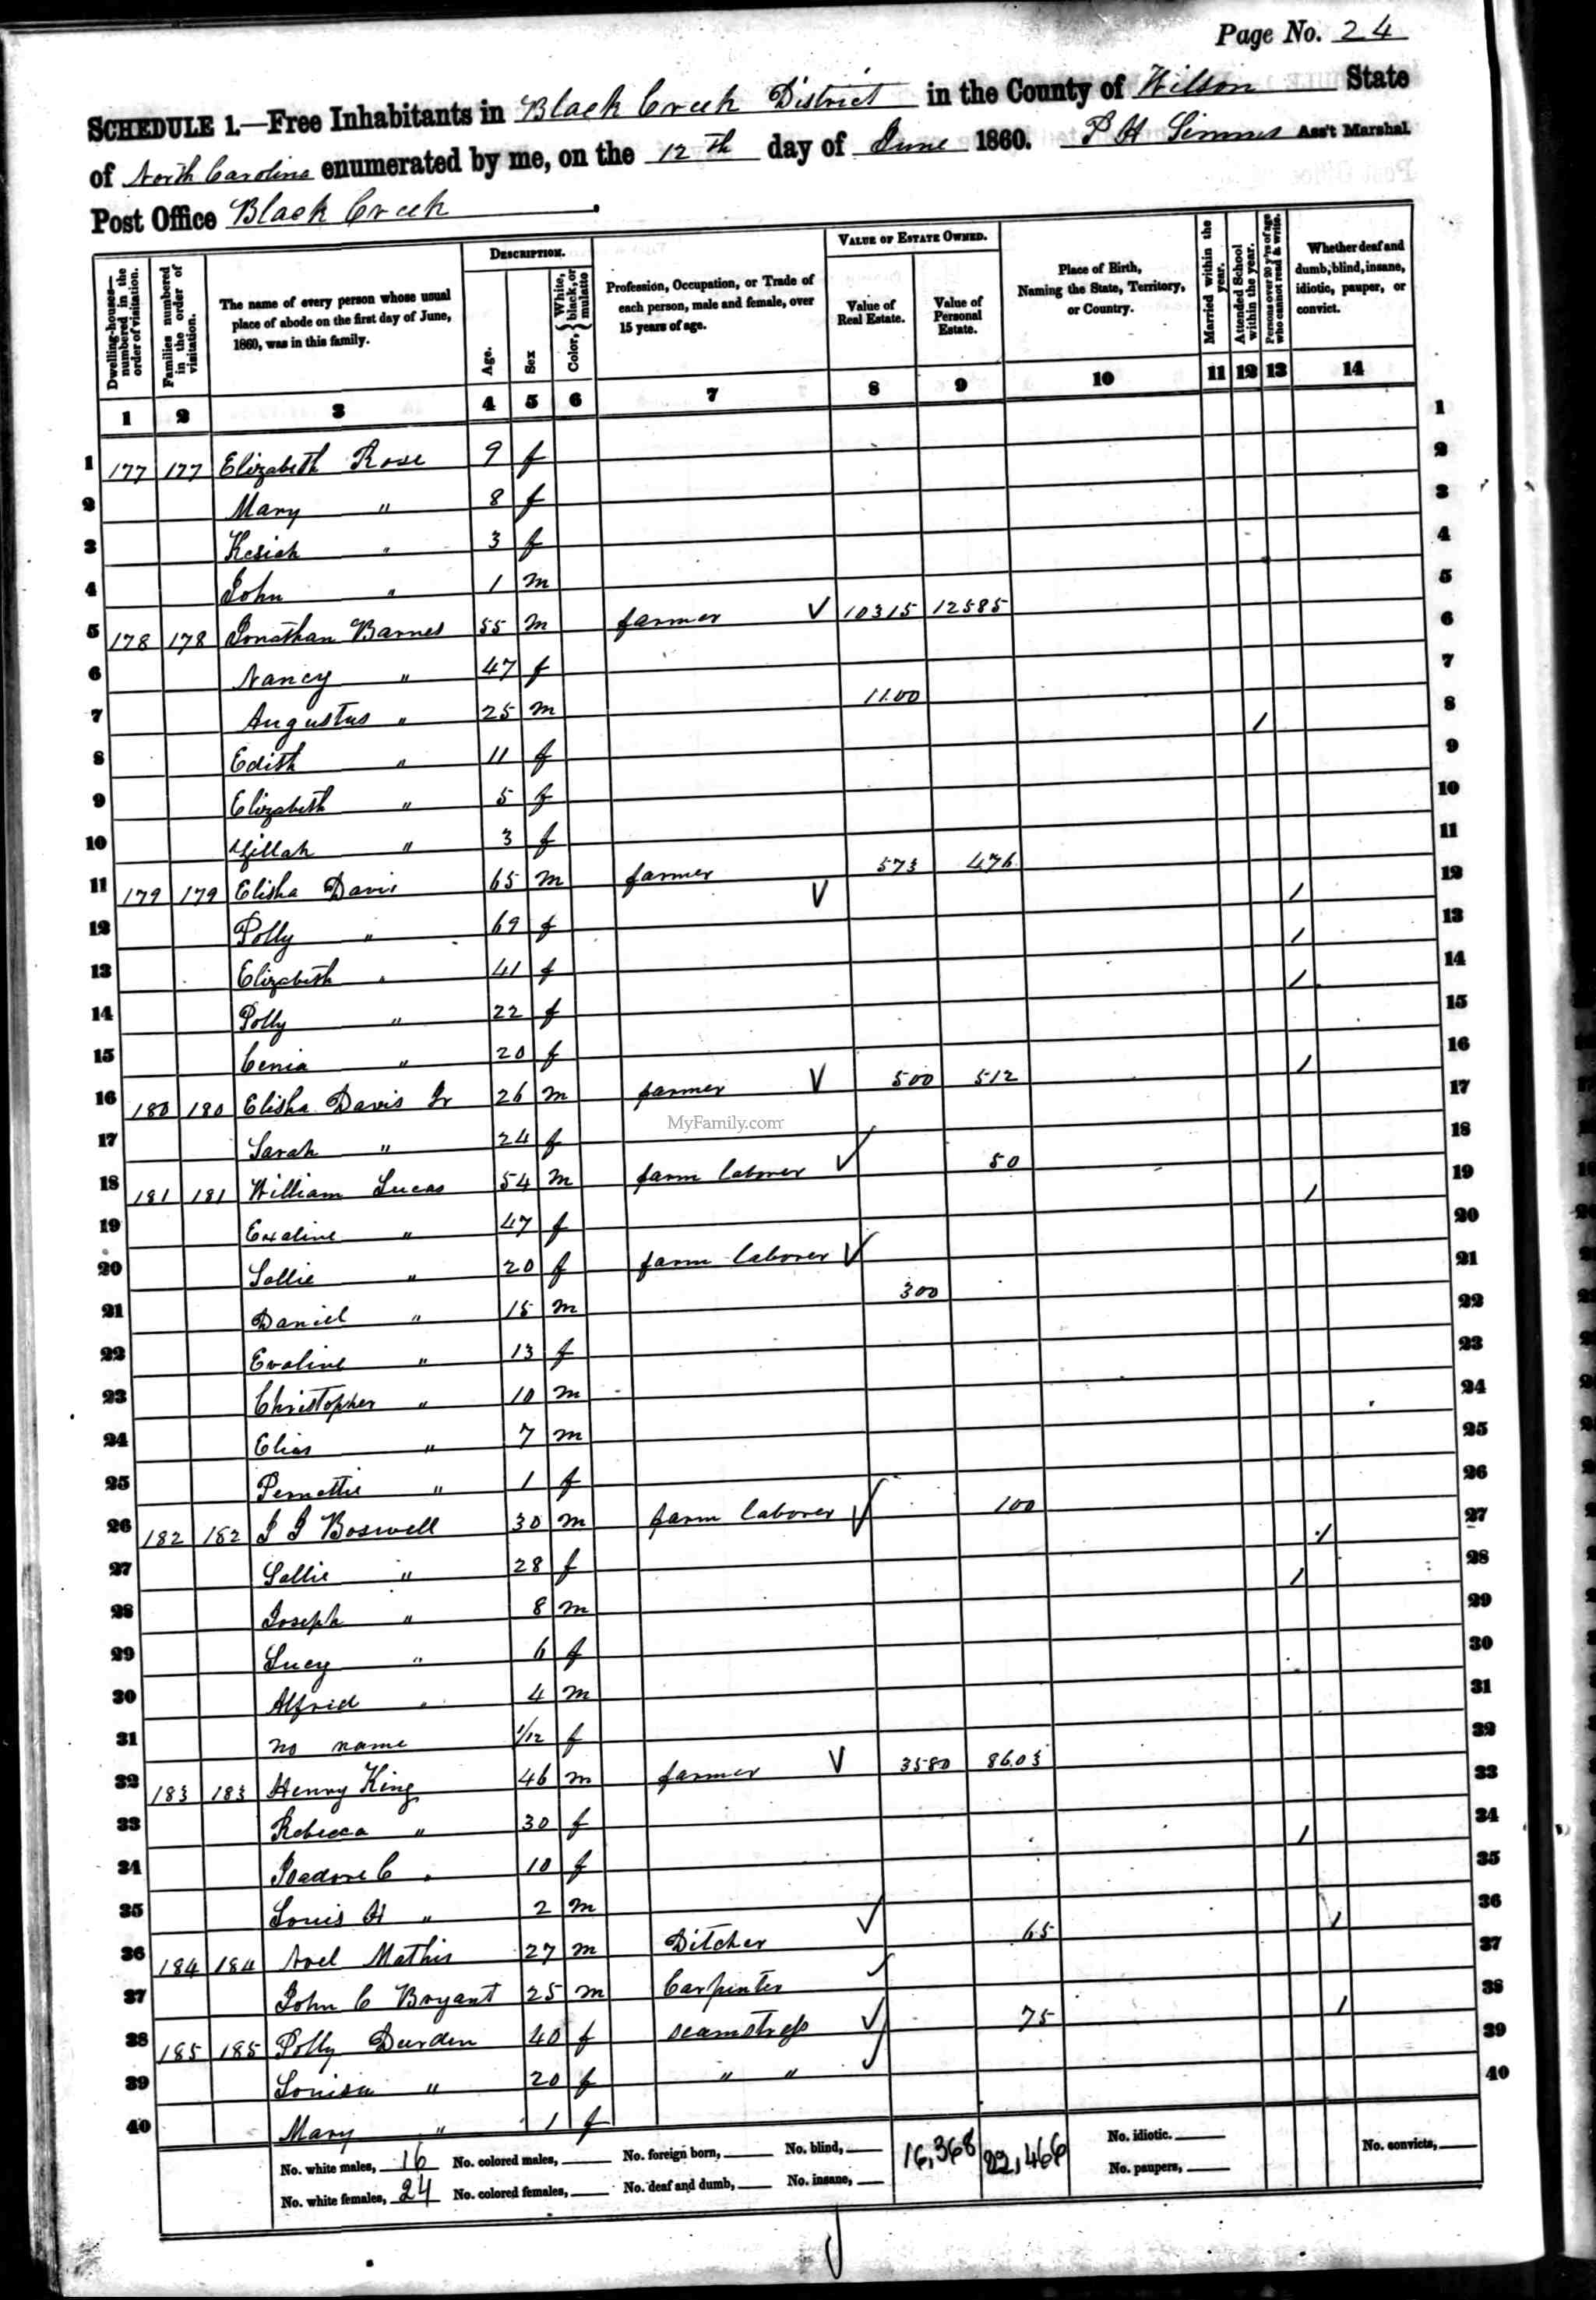 Page No. 24
SCHEDULE 1.—Free Inhabitants in Black Creek District in the County of Wilson State
of North Carolina enumerated by me, on the 12th day of June 1860. P H Simms Ass't Marshal.
Post Office Black Creek.
Dwelling-houses—numbered in the order of visitation. Families numbered in the order of visitation. The name of every person whose usual place of abode on the first day of June, 1860, was in this family. DESCRIPTION. Age. Sex Color, White, black, or mulatto Profession, Occupation, or Trade of each person, male and female, over 15 years of age. VALUE OF ESTATE OWNED. Value of Real Estate. Value of Personal Estate. Place of Birth, Naming the State, Territory, or Country. Married within the year. Attended School within the year. Persons over 20 y'rs of age who cannot read & write. Whether deaf and dumb, blind, insane, idiotic, pauper, or convict.
1 2 3 4 5 6 7 8 9 10 11 12 13 14
1 177 177 Elizabeth Rose 9 f 1
2 Mary " 8 f 2
3 Kesiah " 3 f 3
4 John " 1 m 4
5 178 178 Jonathan Barnes 55 m farmer √ 10315 12585 5
6 Nancy " 47 f 6
7 Augustus " 25 m 1100 7
8 Edith " 11 f / 8
9 Elizabeth " 5 f 9
10 Zillah " 3 f 10
11 179 179 Elisha Davis 65 m farmer √ 573 476 11
12 Polly " 69 f / 12
13 Elizabeth " 41 f / 13
14 Polly " 22 f / 14
15 Cenia " 20 f 15
16 180 180 Elisha Davis Jr 26 m farmer √ 500 512 / 16
MyFamily.com
17 Sarah " 24 f 17
18 181 181 William Lucas 54 m farm laborer √ 50 18
19 Exaline " 47 f / 19
20 Sallie " 20 f farm laborer √ 20
21 Daniel " 15 m 300 21
22 Evaline " 13 f 22
23 Christopher " 10 m 23
24 Elias " 7 m 24
25 " 1 f 25
26 182 182 J J Boswell 30 m farm laborer √ 100 26
27 Sallie " 28 f / 27
28 Joseph " 8 m / 28
29 Lucy " 6 f 29
30 Alfred " 4 m 30
31 no name 1/12 f 31
32 183 183 Henry King 46 m farmer √ 3580 8603 32
33 Rebecca " 30 f 33
34 Isadore C " 10 f / 34
35 Louis H " 2 m 35
36 184 184 Noel Mathis 27 m Ditcher √ 65 / 36
37 John C Bryant 25 m Carpenter √ 37
38 185 185 Polly Durden 40 f seamstress √ 75 / 38
39 Louisa " 20 f " " √ 39
40 Mary " 1 f 40
No. white males, 16 No. colored males, No. foreign born, No. blind, 16,368 22,466 No. idiotic. No. convicts,
No. white females, 24 No. colored females, No. deaf and dumb, No. insane, No. paupers,